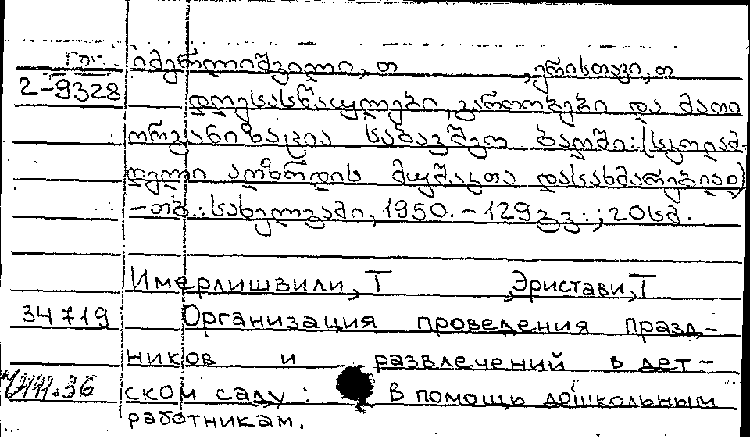 იმერლიშვილი, თ ,ერისთავი, თ
2-9328 დღესასწაულები, გართობები და მათი
ორგანიზაცია საბავშვო ბაღში: (სკოლამ-
დელი აღზრდის მუშაკთა დასახმარებლად)
-თბ.: სახელგამი, 1950. - 129 გვ.; 20 სმ.
Имерлишвили, Т ,Эристави, Т
34719 Организация проведения празд-
ников и развлечений в дет-
ском саду: В помощь дошкольным
работникам.